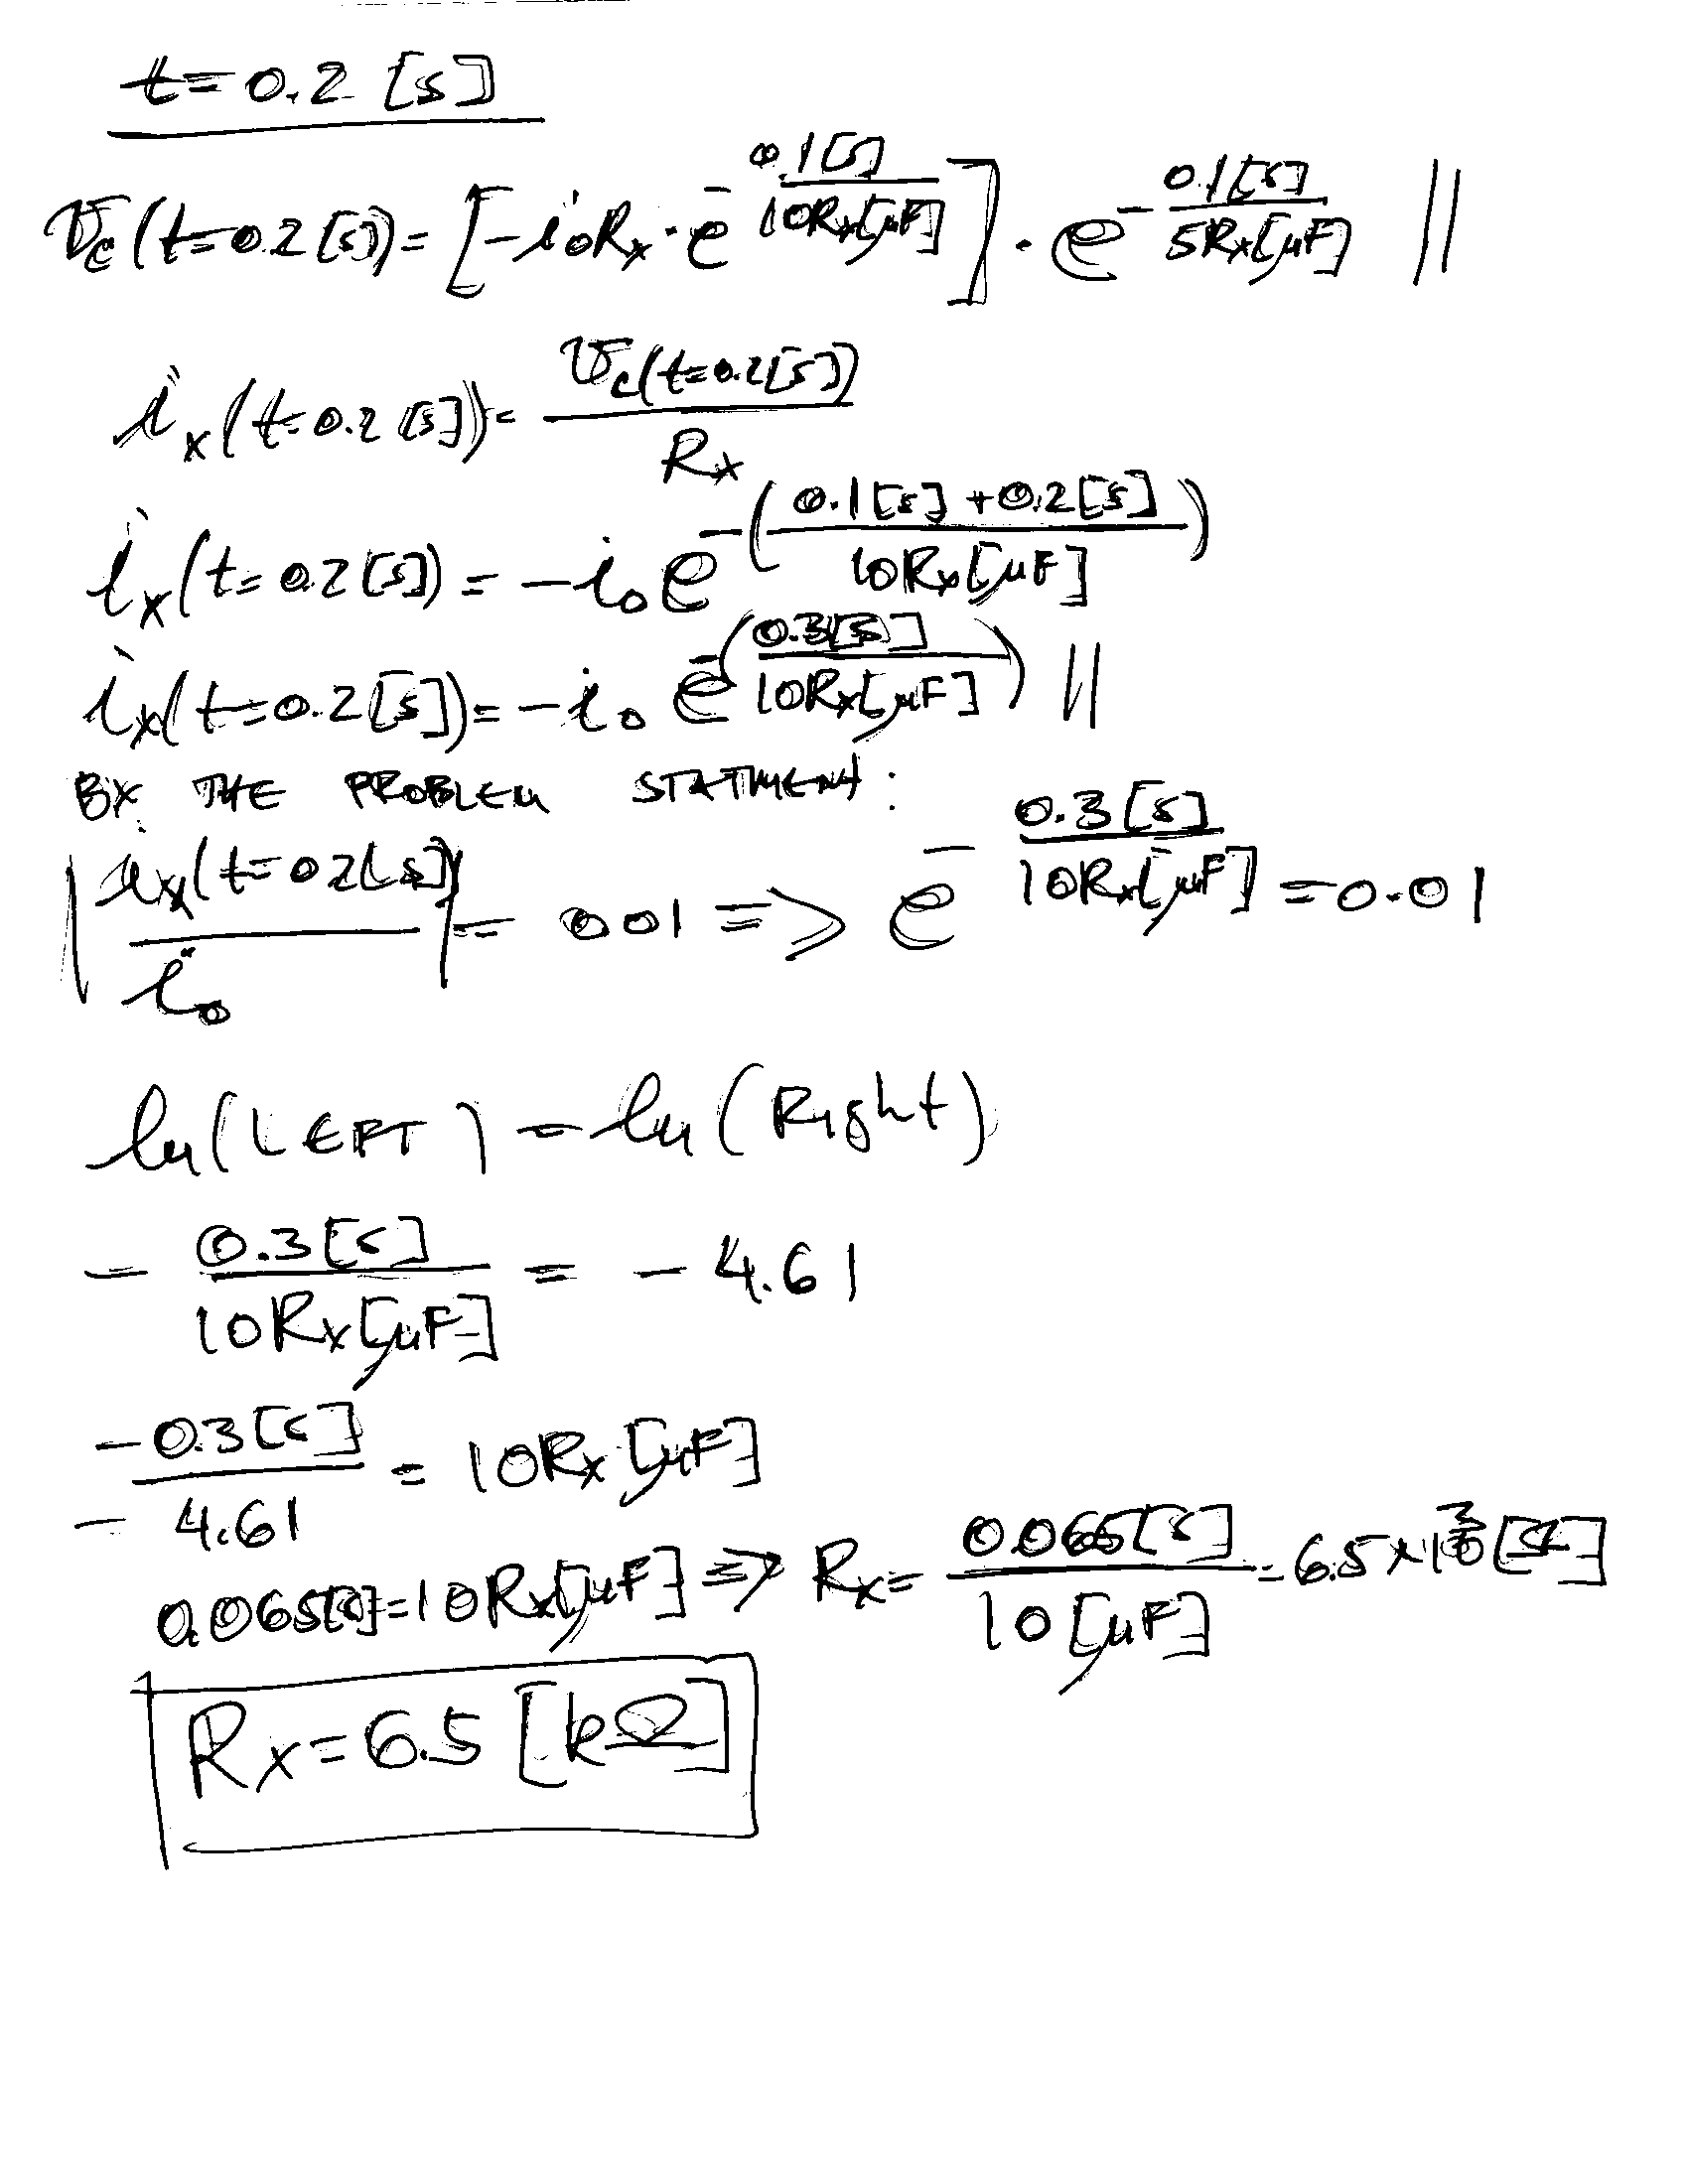 t=0.2 [s]
v_c(t=0.2[s])= [-i_0R_x · e^{-\frac{0.1[s]}{10R_x[μF]}}] · e^{-\frac{0.1[s]}{5R_x[μF]}} ||
i_x(t=0.2[s])= \frac{v_c(t=0.2[s])}{R_x}
i_x(t=0.2[s]) = -i_0 e^{-(\frac{0.1[s]+0.2[s]}{10R_x[μF]})}
i_x(t=0.2[s])= -i_0 e^{-(\frac{0.3[s]}{10R_x[μF]})} ||
BY THE PROBLEM STATMENT:
|\frac{i_x(t=0.2[s])}{i_0}| = 0.01 => e^{-\frac{0.3[s]}{10R_x[μF]}} = 0.01
ln(LEFT) = ln(Right)
- \frac{0.3[s]}{10R_x[μF]} = - 4.61
\frac{-0.3[s]}{-4.61} = 10R_x[μF]
0.065[s]=10R_x[μF] => R_x= \frac{0.065[s]}{10[μF]} = 6.5×10^3[Ω]
R_x=6.5 [kΩ]